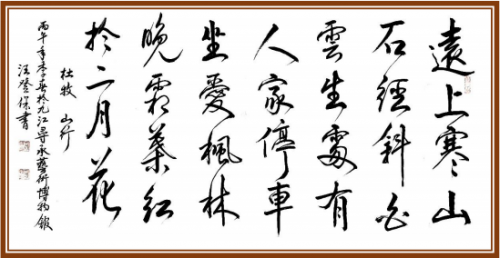 遠上寒山
石徑斜白
雲生處有
人家停車
坐愛楓林
晚霜葉紅
於二月花
杜牧 山行
丙午年季春於九江尋永藝術博物館
汪登保書